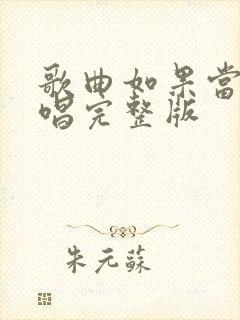 歌曲如果当
唱完整版
朱元蘇